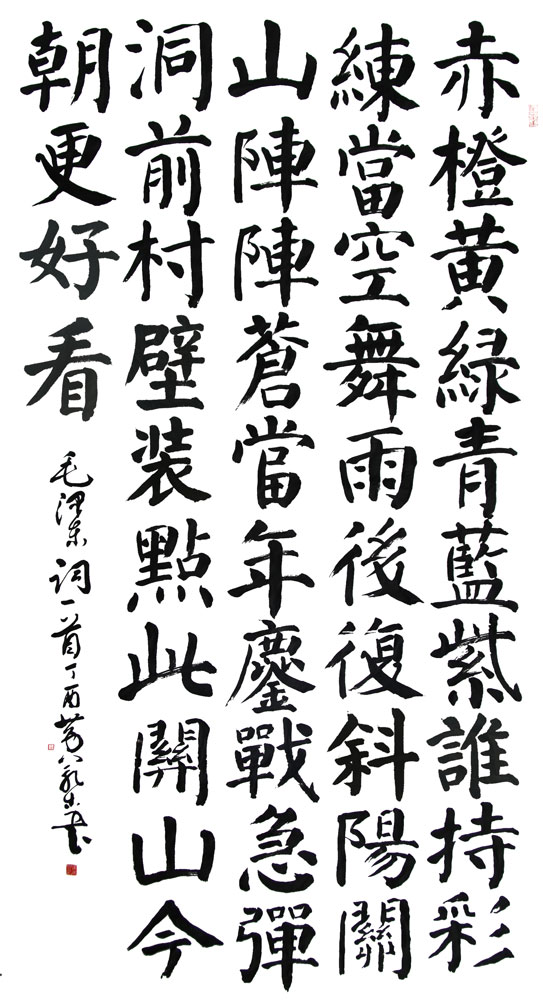 赤橙黄綠青藍紫誰持彩
練當空舞雨後復斜陽關
山陣陣蒼當年鏖戰急彈
洞前村壁装點此關山今
朝更好看
毛澤东詞一首丁酉書